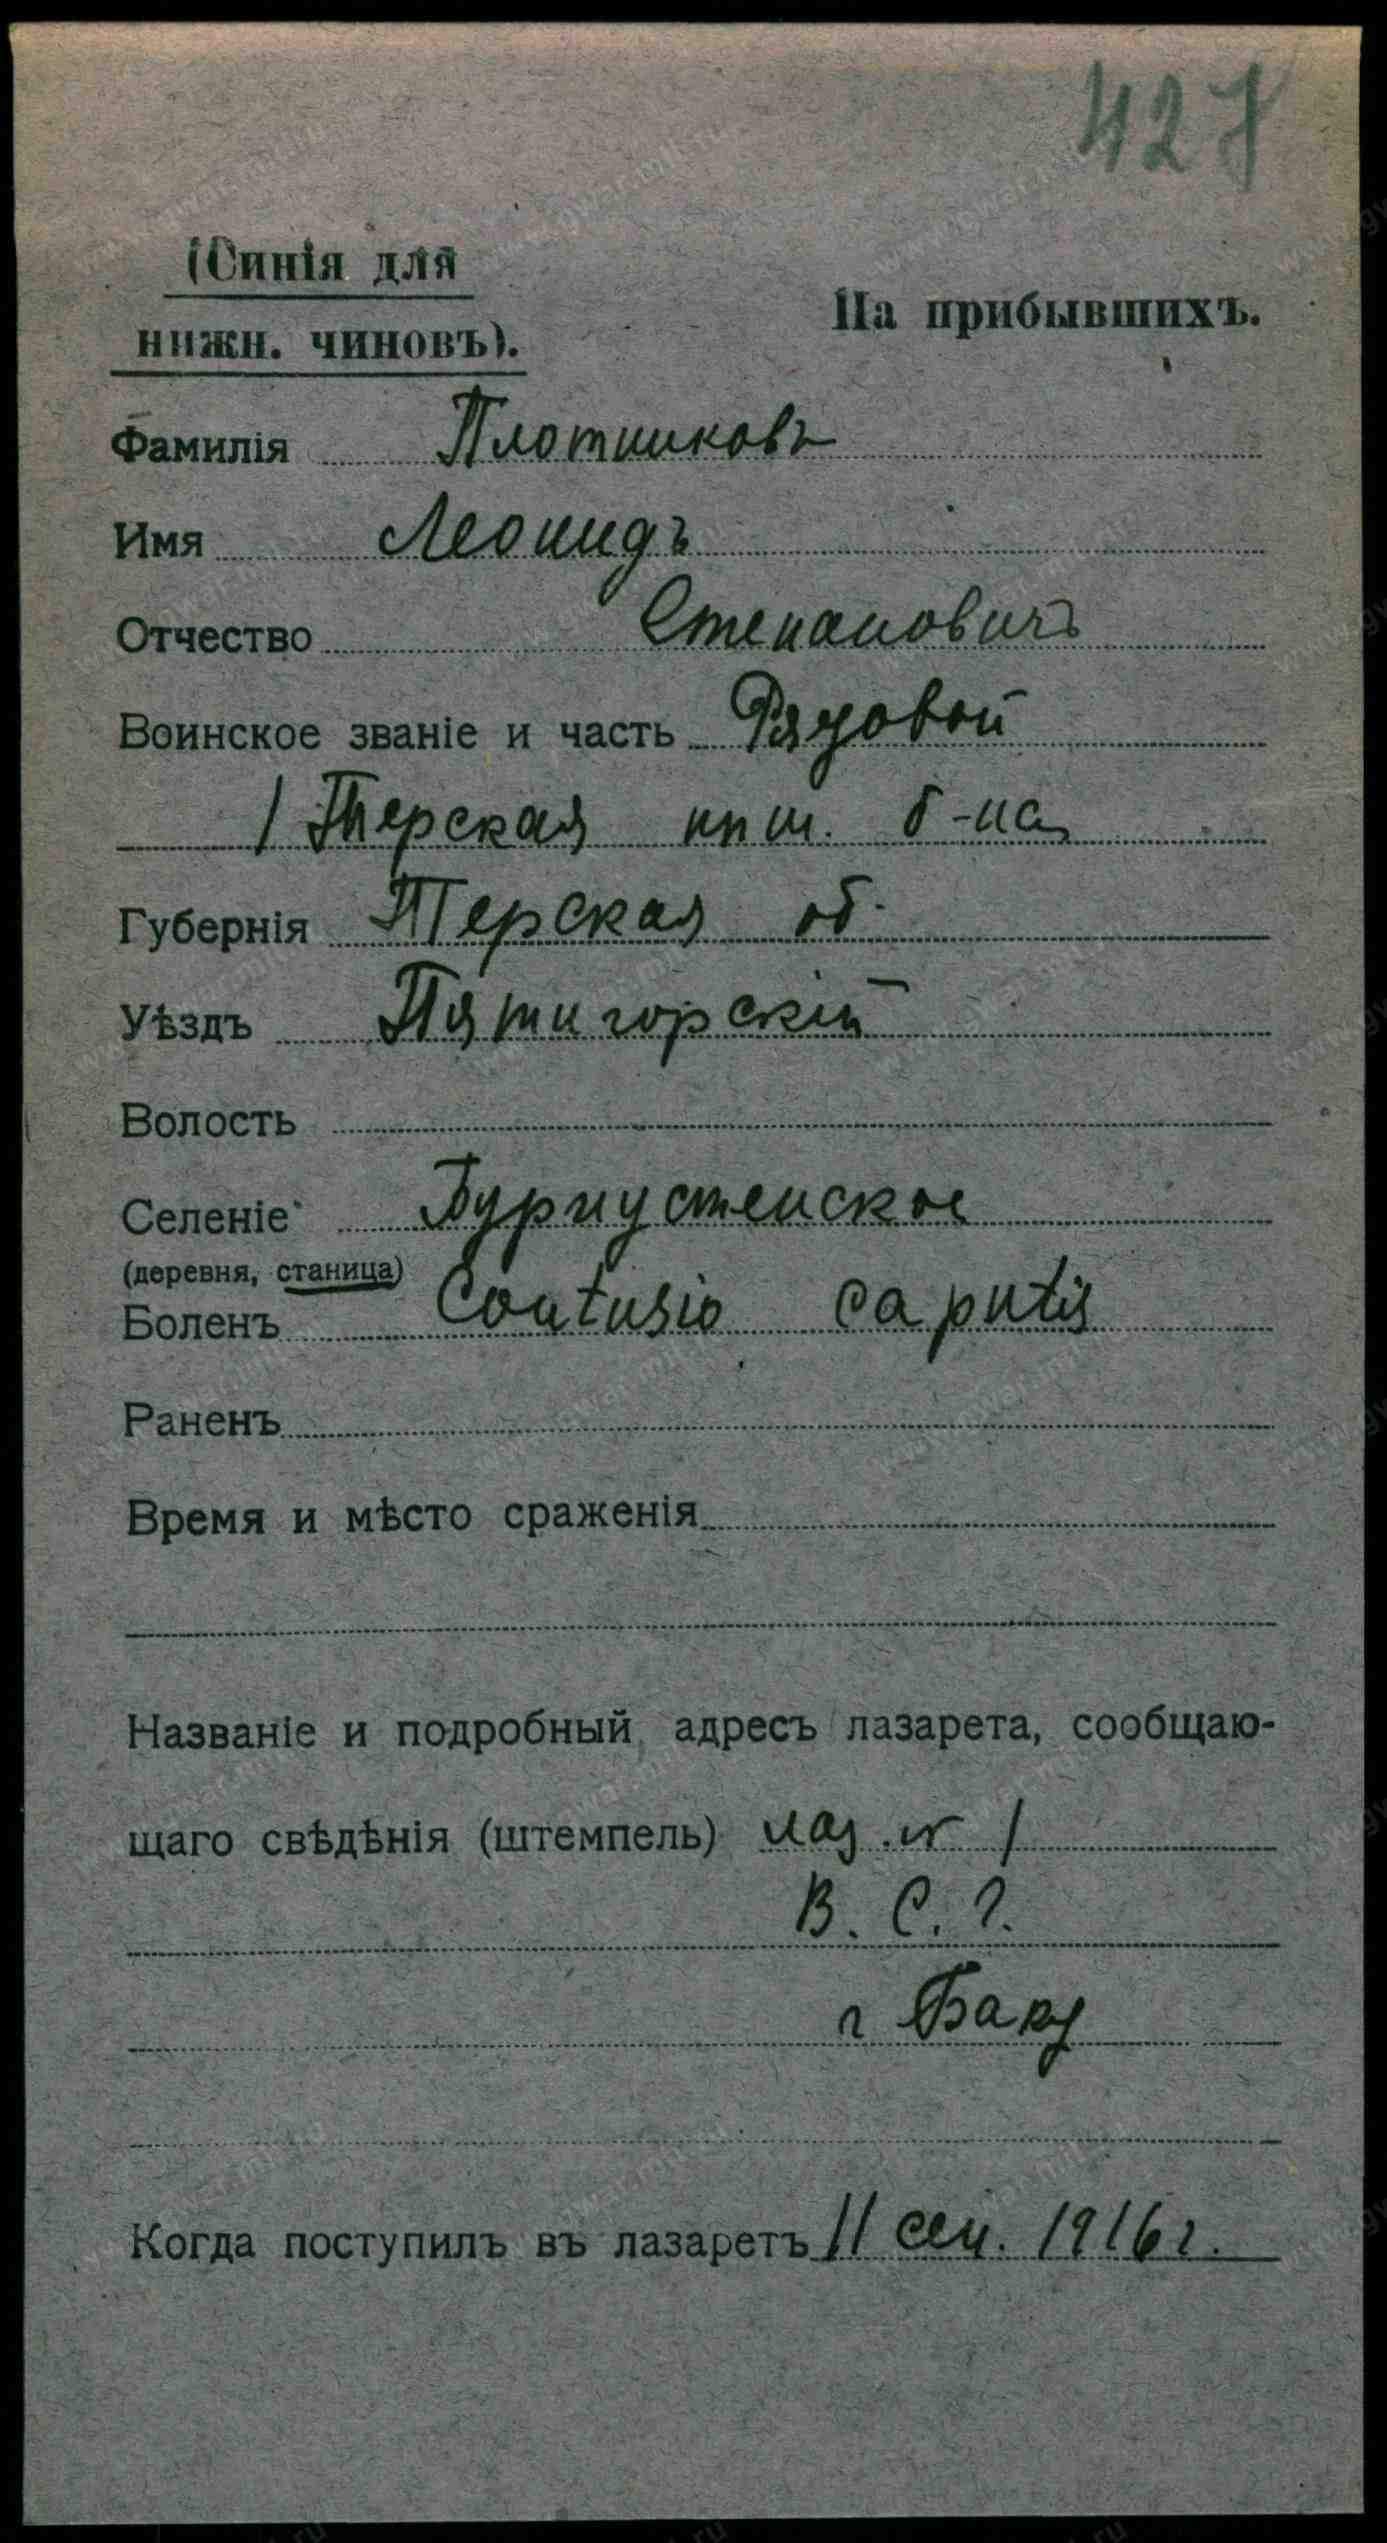 427
(Синія для
нижн. чиновъ).
На прибывшихъ.
Фамилія Плотниковъ
Имя Леонидъ
Отчество Степановичъ
Воинское званіе и часть Рядовой
1 Терская пш. б-на
Губернія Терская об.
Уѣздъ Пятигорскій
Волость
Селеніе Бургустенское
(деревня, станица)
Боленъ Contusio caputis
Раненъ
Время и мѣсто сраженія
Названіе и подробный адресъ лазарета, сообщаю-
щаго свѣдѣнія (штемпель) лаз. № 1
В. С. Г.
г Баку
Когда поступилъ въ лазаретъ 11 сен. 1916 г.